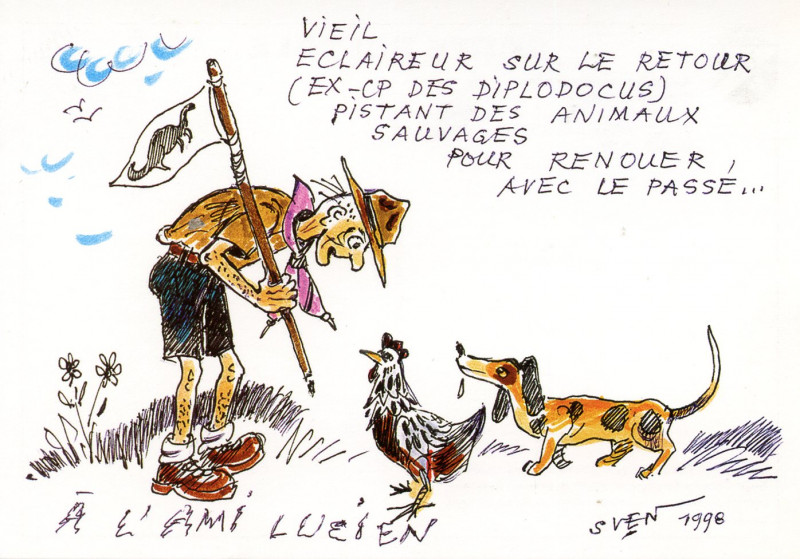 VIEIL
ECLAIREUR SUR LE RETOUR
(EX-CP DES DIPLODOCUS)
PISTANT DES ANIMAUX
SAUVAGES
POUR RENOUER,
AVEC LE PASSÉ...
À L'AMI LUCIEN
SVEN 1998